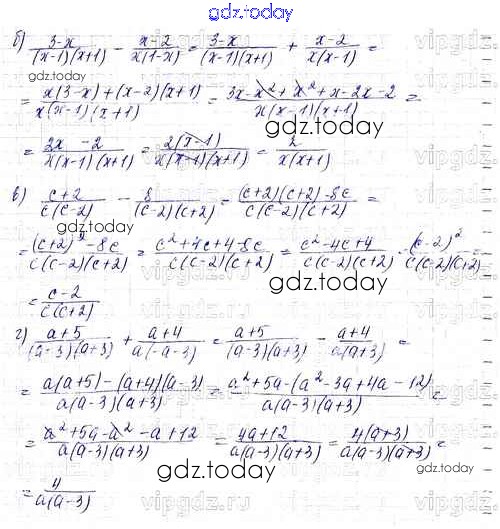 gdz.today
б) (3-x)/((x-1)(x+1)) - (x-2)/(x(1-x)) = (3-x)/((x-1)(x+1)) + (x-2)/(x(x-1)) =
= (x(3-x)+(x-2)(x+1))/(x(x-1)(x+1)) = (3x-x²+x²+x-2x-2)/(x(x-1)(x+1)) =
= (2x-2)/(x(x-1)(x+1)) = (2(x-1))/(x(x-1)(x+1)) = 2/(x(x+1))
в) (c+2)/(c(c-2)) - 8/((c-2)(c+2)) = ((c+2)(c+2)-8c)/(c(c-2)(c+2)) =
= ((c+2)²-8c)/(c(c-2)(c+2)) = (c²+4c+4-8c)/(c(c-2)(c+2)) = (c²-4c+4)/(c(c-2)(c+2)) = (c-2)²/(c(c-2)(c+2)) =
= (c-2)/(c(c+2))
г) (a+5)/((a-3)(a+3)) + (a+4)/(a(-a-3)) = (a+5)/((a-3)(a+3)) - (a+4)/(a(a+3)) =
= (a(a+5)-(a+4)(a-3))/(a(a-3)(a+3)) = (a²+5a-(a²-3a+4a-12))/(a(a-3)(a+3)) =
= (a²+5a-a²-a+12)/(a(a-3)(a+3)) = (4a+12)/(a(a-3)(a+3)) = (4(a+3))/(a(a-3)(a+3)) =
= 4/(a(a-3))
gdz.today